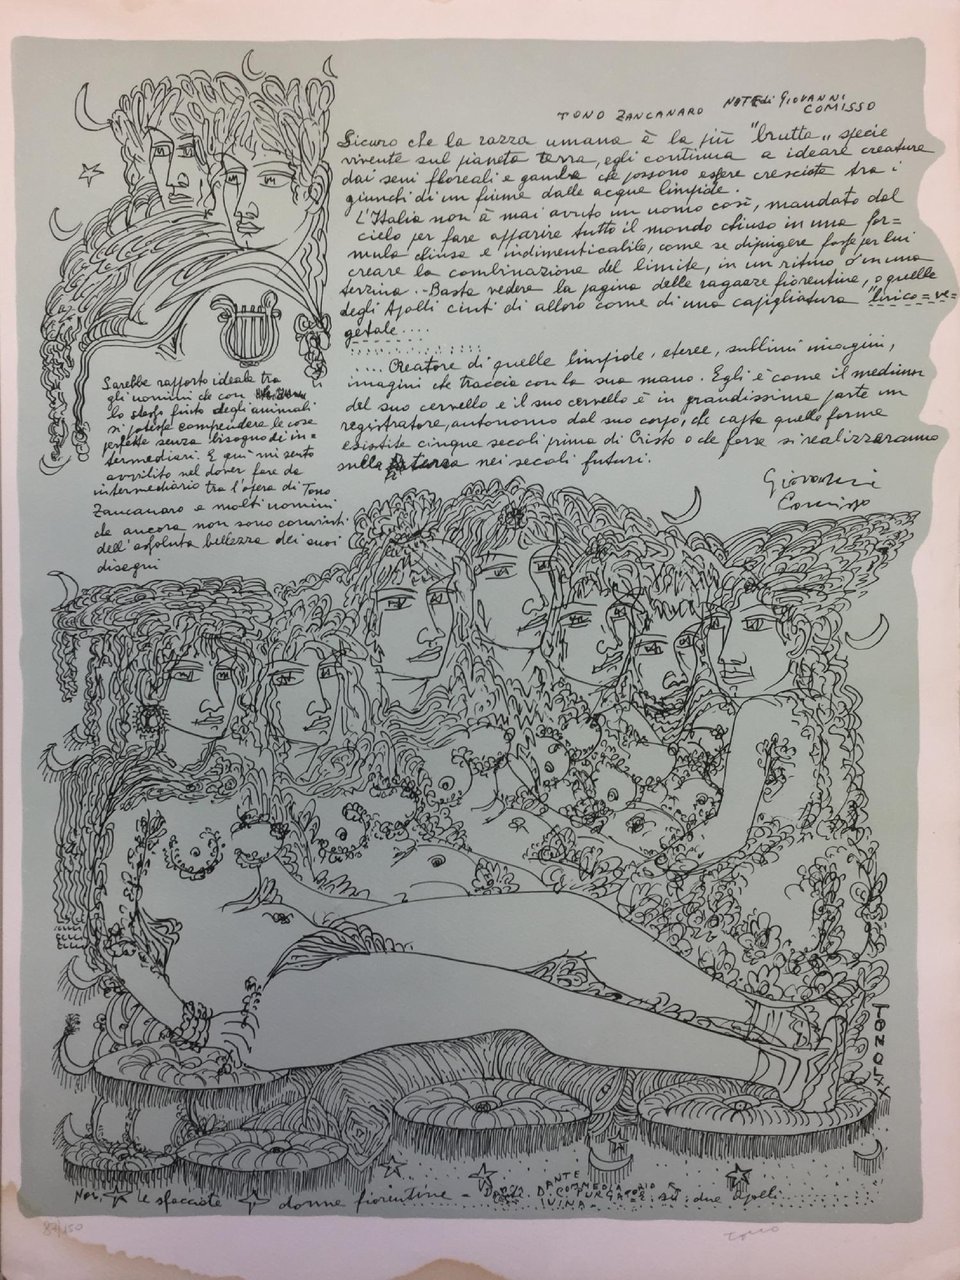 TONO ZANCANARO NOTE di GIOVANNI COMISSO
Sicuro che la razza umana è la più "brutta" specie
vivente sul pianeta terra, egli continua a ideare creature
dai seni floreali e gambe che possono essere cresciute tra i
giunchi di un fiume dalle acque limpide.
L'Italia non à mai avuto un uomo così, mandato dal
cielo per fare apparire tutto il mondo chiuso in una for=
mula chiusa e indimenticabile, come se dipingere fosse per lui
creare la combinazione del limite, in un ritmo d'una
terzina. - Basta vedere la pagina delle ragazze fiorentine, o quelle
degli Apolli cinti di alloro come di una capigliatura "lirico=ve=
getale ....
.... Creatore di quelle limpide, eteree, sublimi imagini,
imagini che traccia con la sua mano. Egli è come il medium
del suo cervello e il suo cervello è in grandissima parte un
registratore, autonomo dal suo corpo, che capta quelle forme
esistite cinque secoli prima di Cristo o che forse si realizzeranno
sulla terra nei secoli futuri.
Giovanni
Comisso
Sarebbe rapporto ideale tra
gli uomini che con
lo stesso fiuto degli animali
si potesse comprendere le cose
perfette senza bisogno di in=
termediari. E qui mi sento
avvilito nel dover fare da
intermediario tra l'opera di Tono
Zancanaro e molti uomini
che ancora non sono convinti
dell'assoluta bellezza dei suoi
disegni
TONO LXX
Non le sfacciate donne fiorentine - DANTE D. COMMEDIA PURGATORIO due Apolli
84/150
Tono